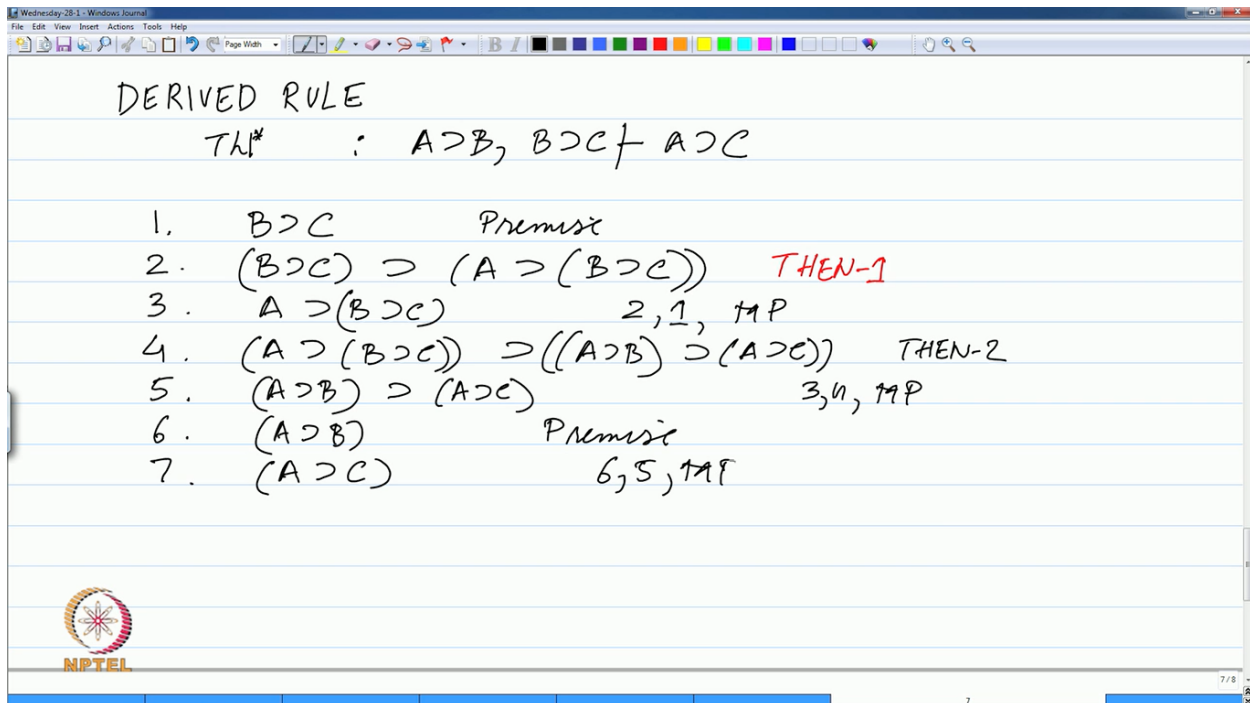 Wednesday-28-1 - Windows Journal
File Edit View Insert Actions Tools Help
Page Width B I
DERIVED RULE
Th1* : A⊃B, B⊃C ⊢ A⊃C
1. B⊃C Premise
2. (B⊃C) ⊃ (A ⊃ (B⊃C)) THEN-1
3. A ⊃(B⊃C) 2, 1, MP
4. (A ⊃ (B⊃C)) ⊃((A⊃B) ⊃(A⊃C)) THEN-2
5. (A⊃B) ⊃ (A⊃C) 3,4, MP
6. (A⊃B) Premise
7. (A⊃C) 6,5, MP
NPTEL
7/8
7